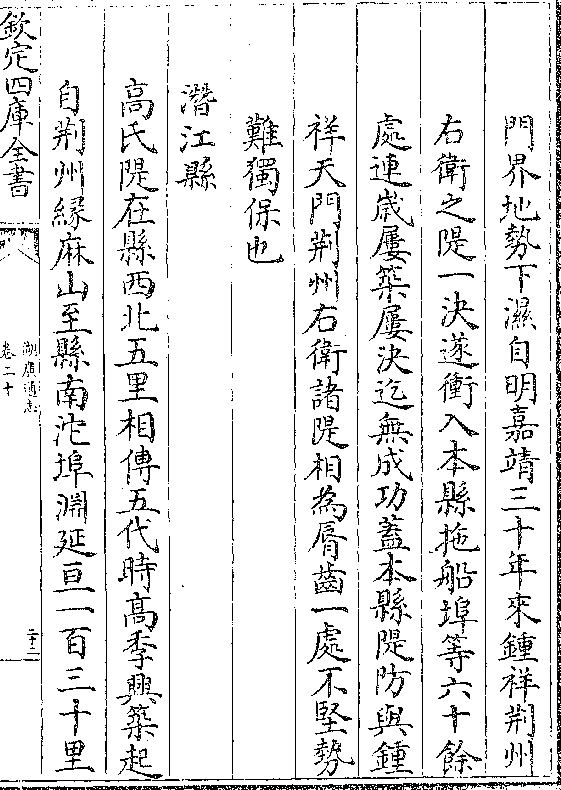 門界地勢下濕自明嘉靖三十年來鍾祥荆州
右衛之隄一決遂衝入本縣拖船埠等六十餘
處連歲屢築屢決迄無成功蓋本縣隄防與鍾
祥天門荆州右衛諸隄相為脣齒一處不堅勢
難獨保也
潛江縣
高氏隄在縣西北五里相傳五代時高季興築起
自荆州緣麻山至縣南沱埠淵延亘一百三十里
欽定四庫全書
湖廣通志
卷二十